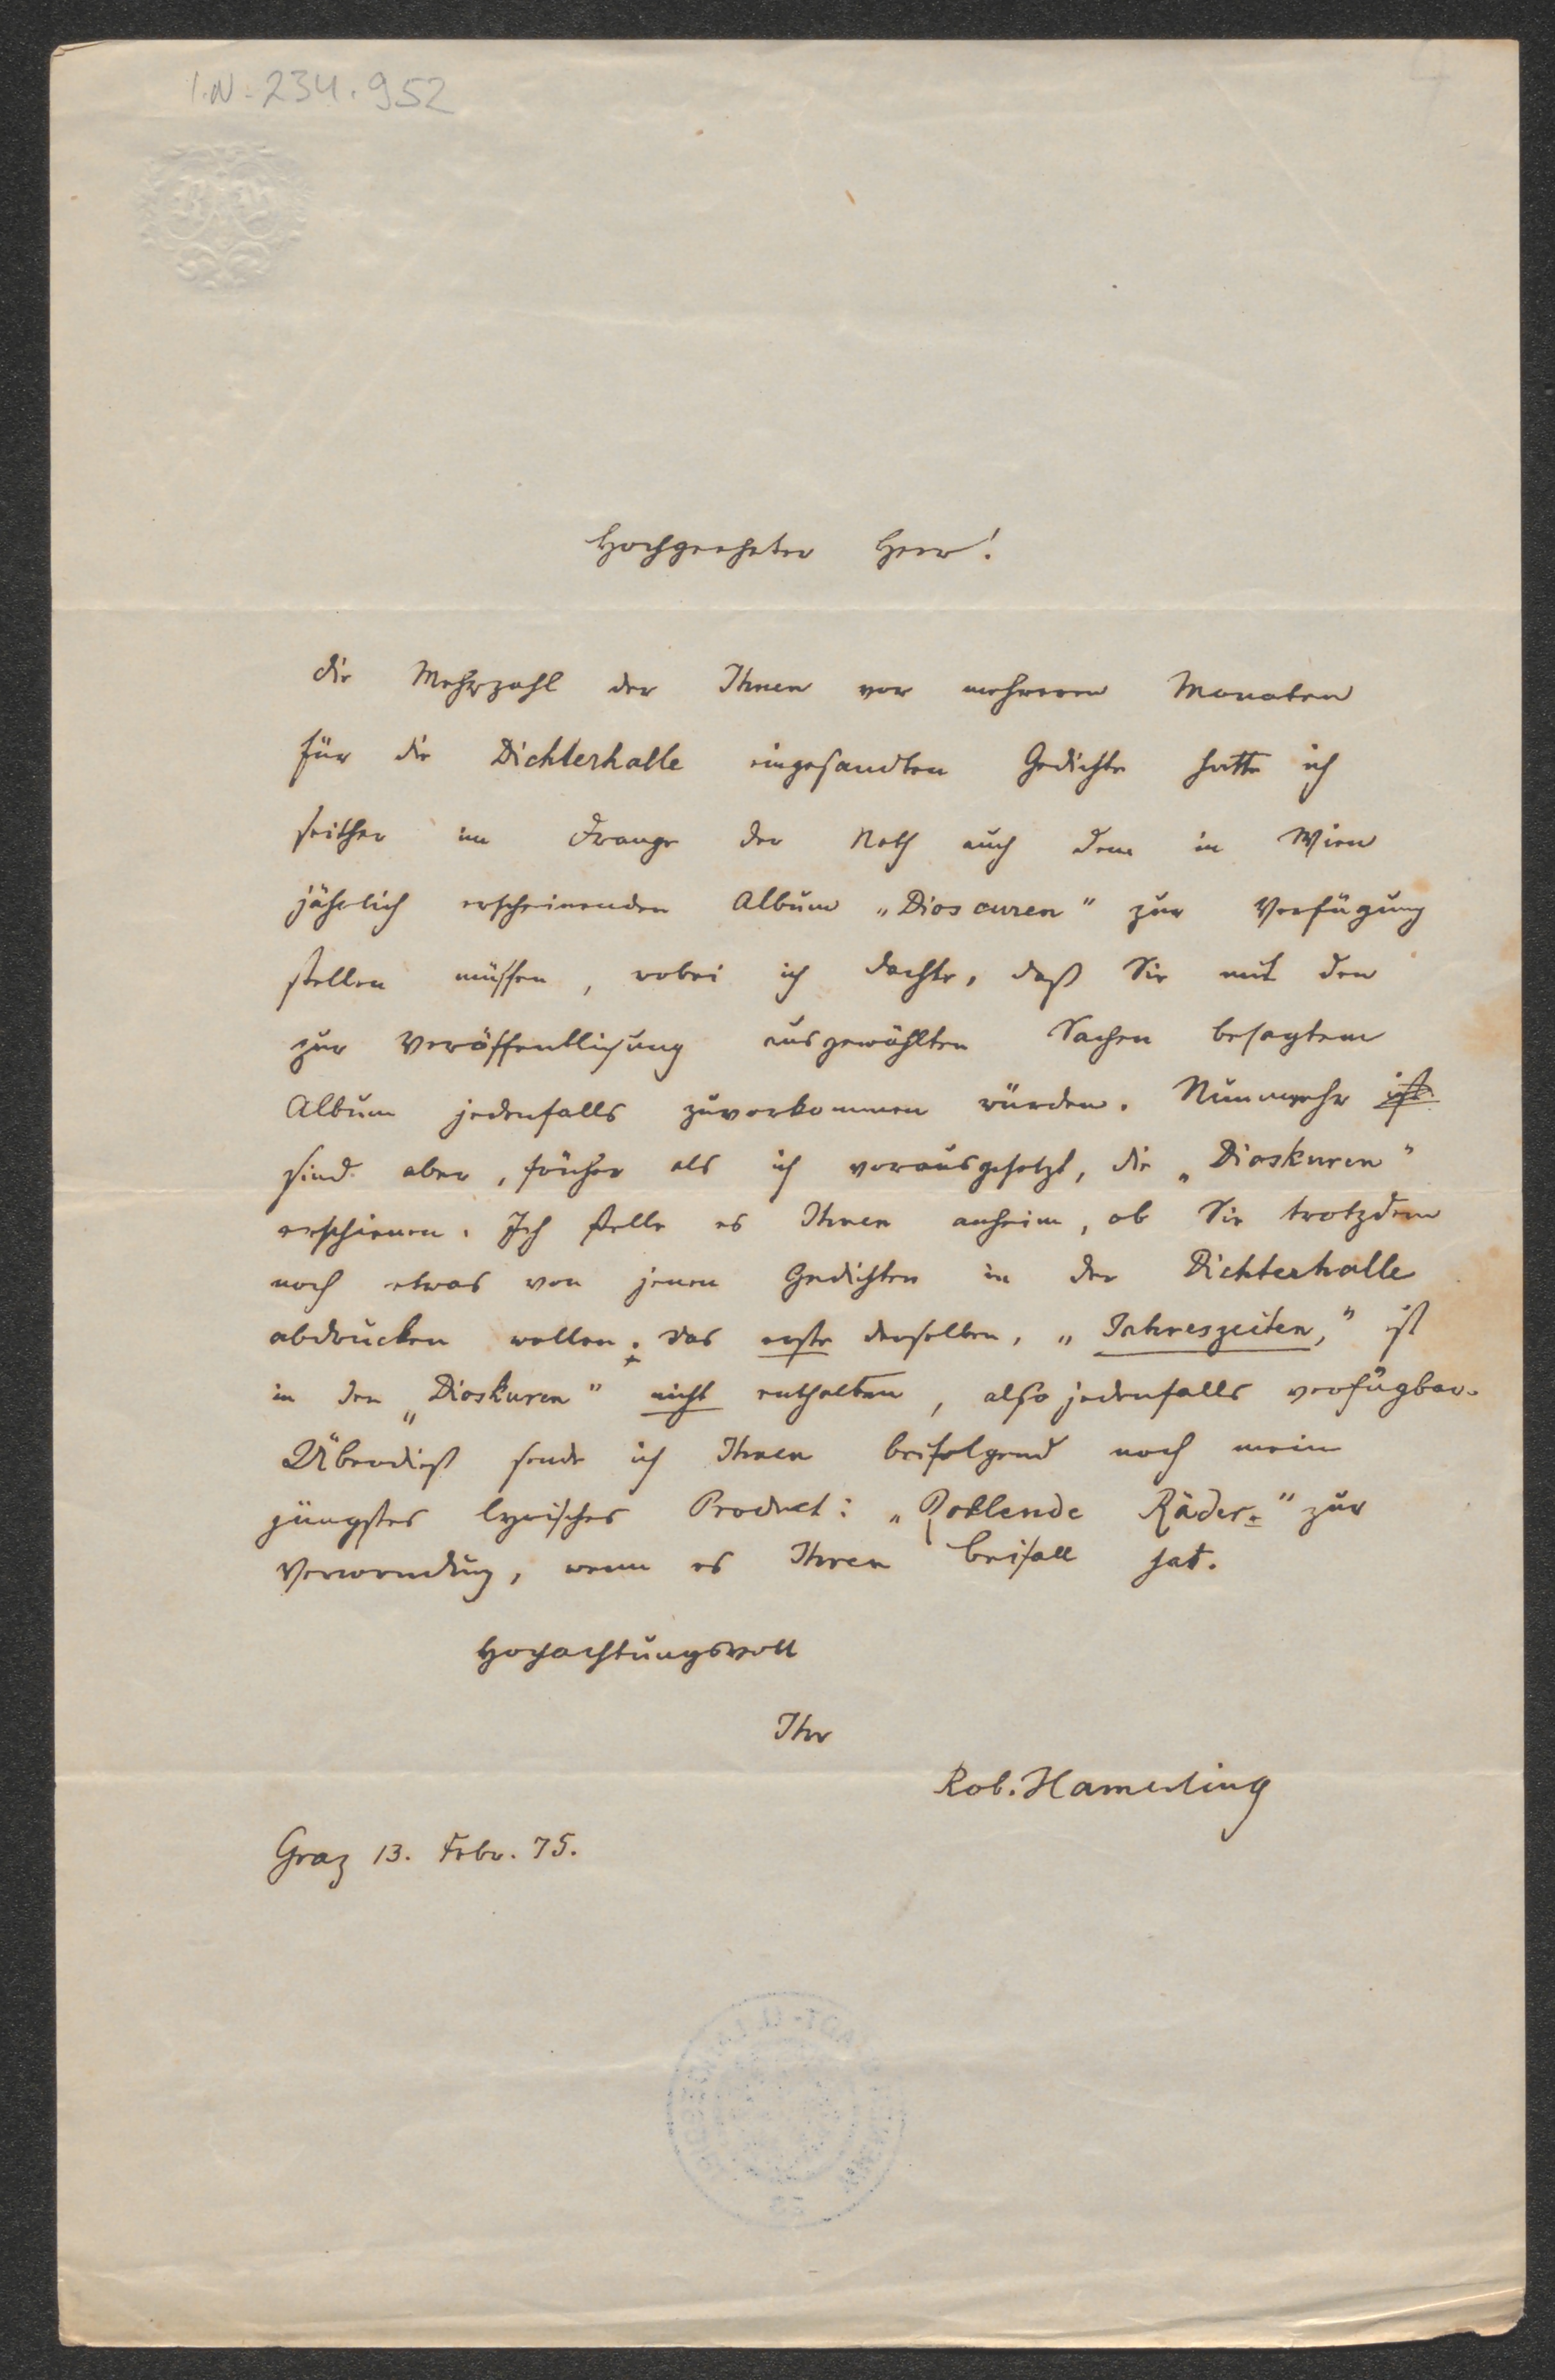 I.N. 234.952
Hochgeehrter Herr!
die Mehrzahl der Ihnen vor mehreren Monaten
für die Dichterhalle eingesandten Gedichte hatte ich
seither im Drange der Noth auch dem in Wien
jährlich erscheinenden Album „Dioscuren" zur Verfügung
stellen müssen, wobei ich dachte, daß Sie mit den
zur Veröffentlichung ausgewählten Sachen besagtem
Album jedenfalls zuvorkommen würden. Nunmehr ist
sind aber, früher als ich vorausgesetzt, die „Dioskuren"
erschienen. Ich stelle es Ihnen anheim, ob Sie trotzdem
noch etwas von jenen Gedichten in der Dichterhalle
abdrucken wollen; das erste derselben, „Jahreszeiten," ist
in den „Dioskuren" nicht enthalten, also jedenfalls verfügbar.
Überdieß sende ich Ihnen beifolgend noch mein
jüngstes lyrisches Product: „Rollende Räder." zur
Verwendung, wenn es Ihren Beifall hat.
Hochachtungsvoll
Ihr
Rob. Hamerling
Graz 13. Febr. 75.